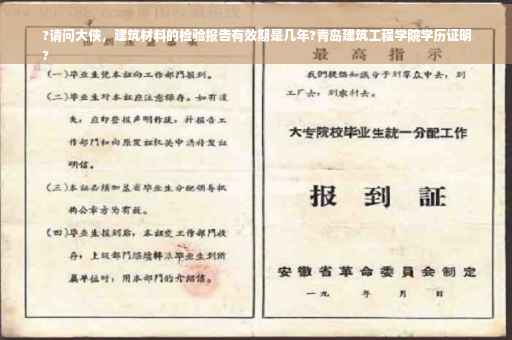 ?请问大侠，建筑材料的检验报告有效期是几年?青岛建筑工程学院学历证明
?
(一)毕业生凭本证向工作部门报到。
(二)毕业生对本证应注意保存。如有遗
失，应即登报声明作废，并报告工
作部门和向原发证机关申请补发证
明信。
(三)本证必须加盖省毕业生分配领导机
构公章方为有效。
(四)毕业生报到后，本证交工作部门收
存；上级部门
属单位时，用本部门的介绍信。
最高指示
我们提倡知识分子到群众中去，到
工厂去，到农村去。
大专院校毕业生統一分配工作
报到証
安徽省革命委員会制定
一九 年 月 日